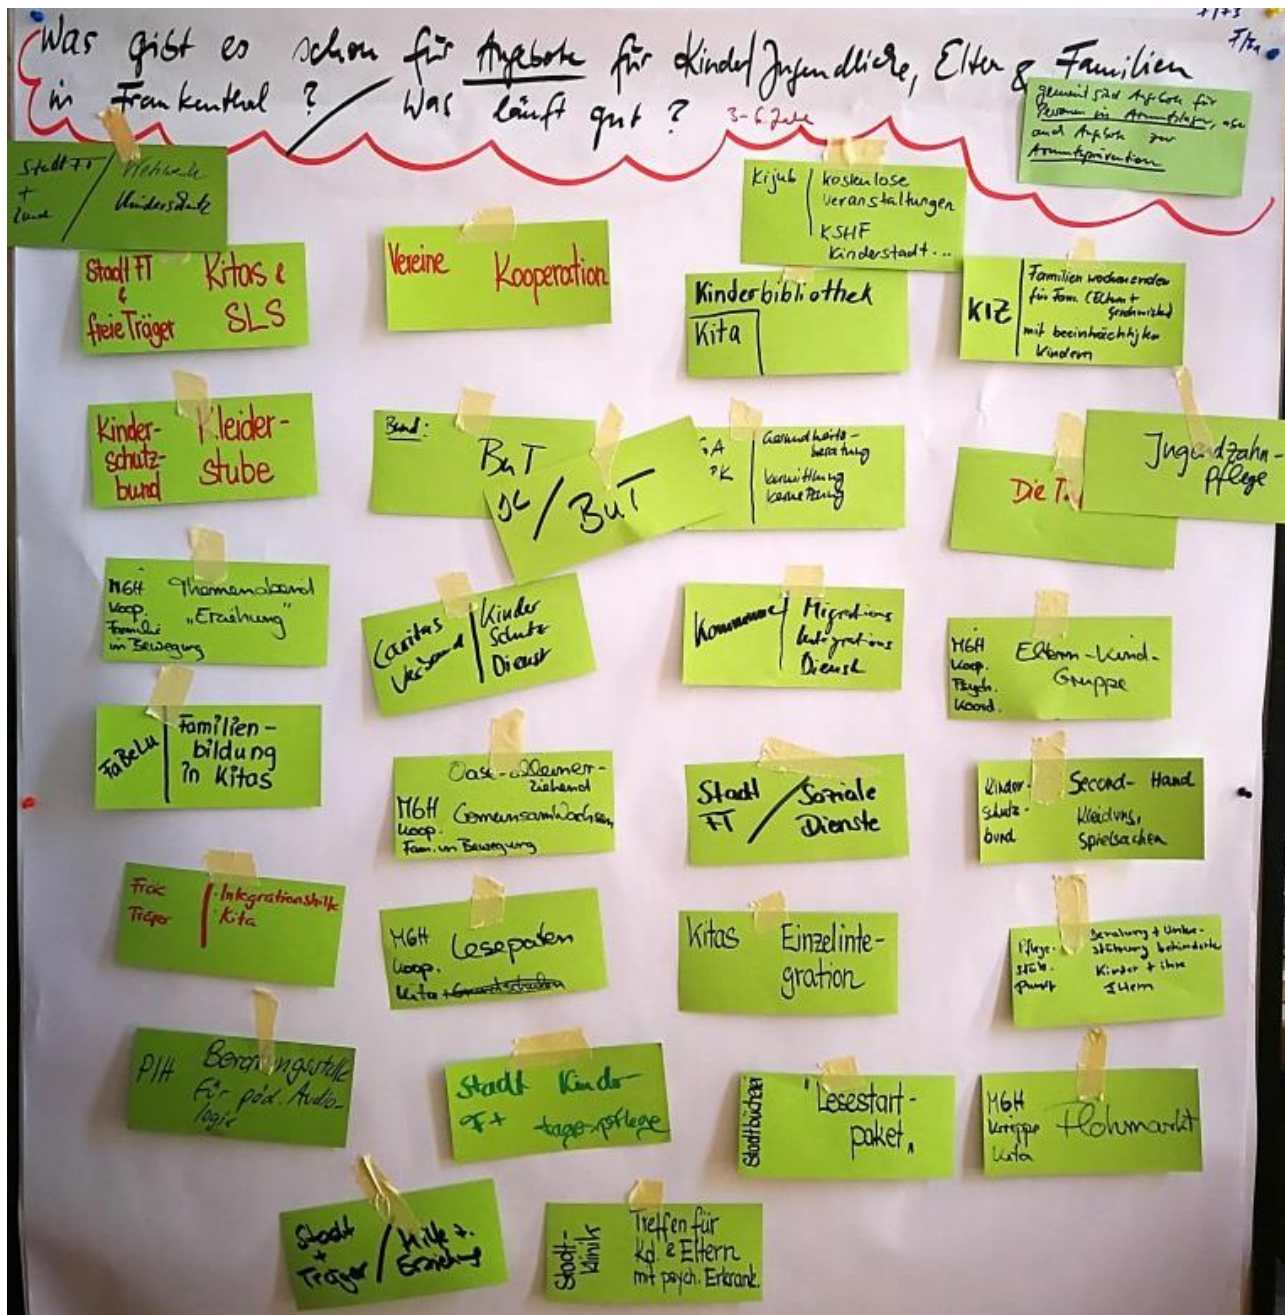 Was gibt es schon für Angebote für Kinder/Jugendliche, Eltern & Familien
in Frankenthal ? / Was läuft gut ?
3-6 Jahre
gemeint sind Angebote für
Personen in Armutslagen, als
auch Angebote zur
Armutsprävention
Stadt FT
+
Land
Netzwerk
Kinderschutz
Kijub
kostenlose
veranstaltungen
KSHF
Kinderstadt...
Stadt FT
&
freie Träger
Kitas &
SLS
Vereine
Kooperation
Kinderbibliothek
Kita
KIZ
Familienwochenenden
für Fam. (Eltern +
Geschwister)
mit beeinträchtigten
Kindern
Kinder-
schutz-
bund
Kleider-
stube
Bund:
BuT
JC / BuT
GA
Gesundheits-
beratung
Vermittlung
Vernetzung
Die
Jugendzahn-
pflege
MGH
Koop.
Familie
in Bewegung
Themenabend
„Erziehung"
Caritas
Verband
Kinder
Schutz
Dienst
Kommune
Migrations
Integrations
Dienst
MGH
Koop.
Psych.
Koord.
Eltern-Kind-
Gruppe
FaBeLu
Familien-
bildung
in Kitas
Oase-Alleiner-
ziehend
MGH
Koop.
Fam. in Bewegung
GemeinsamWachsen
Stadt
FT
Soziale
Dienste
Kinder-
schutz-
bund
Second-Hand
Kleidung,
Spielsachen
Freie
Träger
Integrationshilfe
Kita
MGH
Koop.
Kita + Grundschulen
Lesepaten
Kitas
Einzelinte-
gration
Pflege-
stütz-
punkt
Beratung + Unter-
stützung behinderte
Kinder + ihre
Eltern
PIH
Beratungsstelle
für päd. Audio-
logie
Stadt
FT
Kinder-
tagespflege
Stadtbücherei
"Lesestart-
paket"
MGH
Krippe
Kita
Flohmarkt
Stadt
+
Träger
Hilfe z.
Erziehung
Stadt-
klinik
Treffen für
Kd. & Eltern
mit psych. Erkrank.